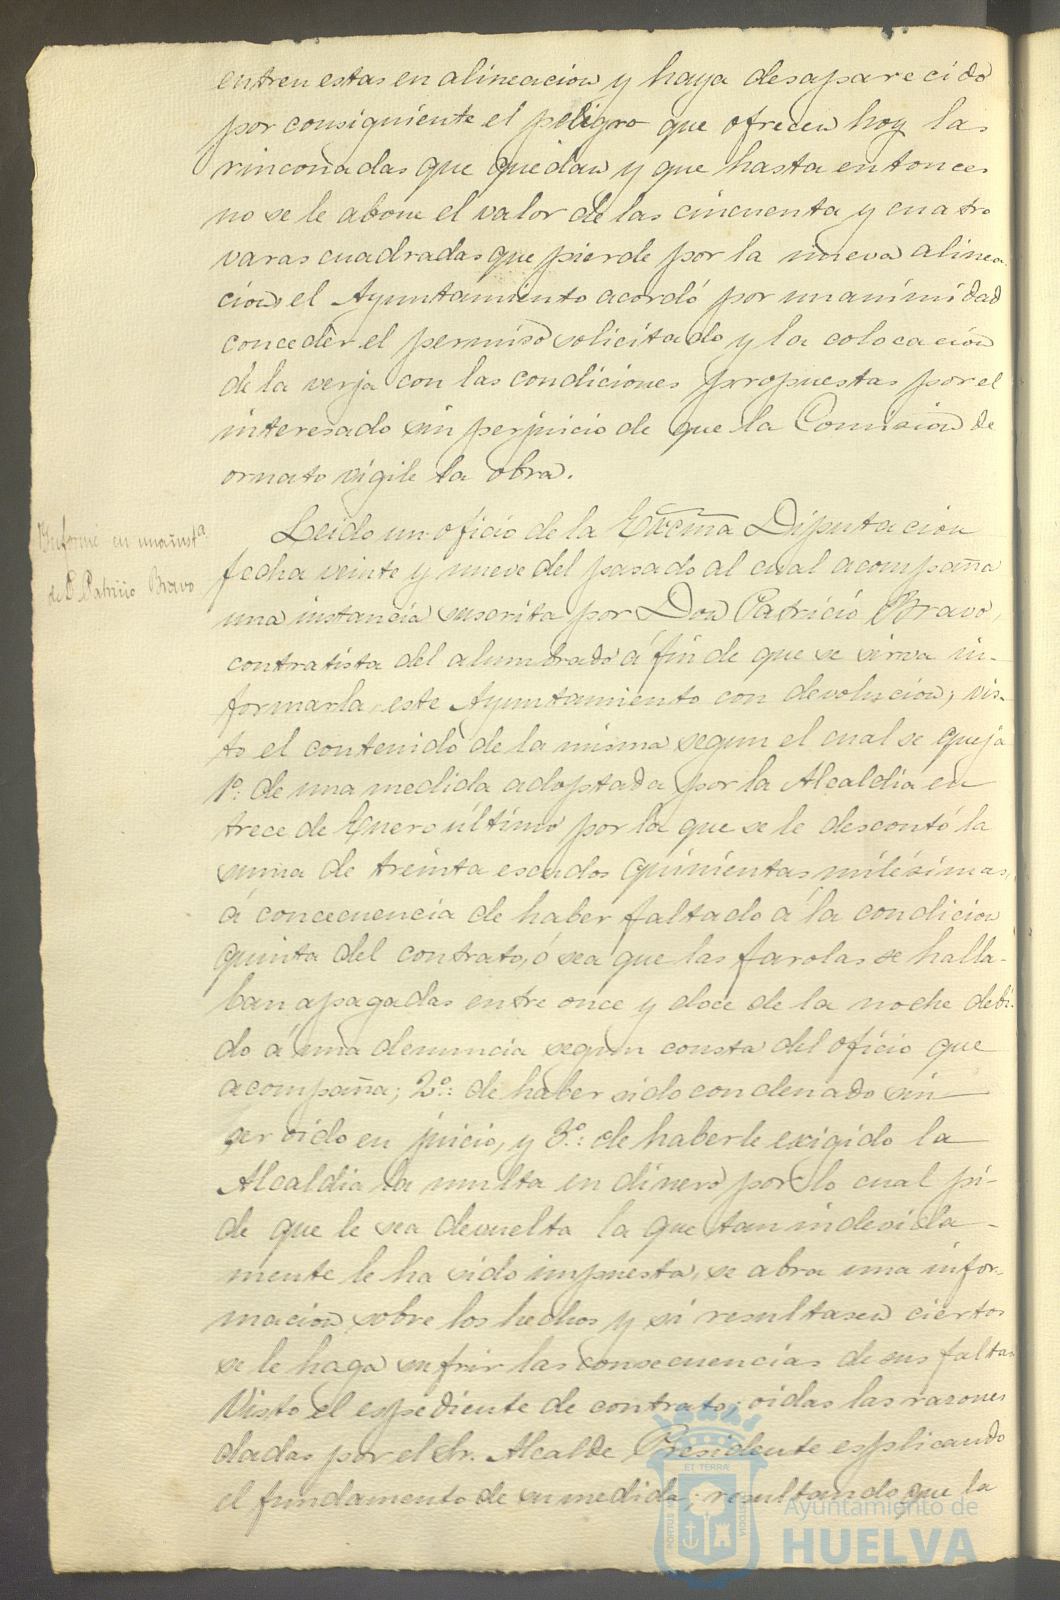 entren estas en alineacion y haya desaparecido
por consiguiente el peligro que ofrecen hoy las
rinconadas que quedan y que hasta entonces
no se le abone el valor de las cincuenta y cuatro
varas cuadradas que pierde por la nueva alinea-
cion, el Ayuntamiento acordó por unanimidad
conceder el permiso solicitado y la colocacion
de la verja con las condiciones propuestas por el
interesado sin perjuicio de que la Comision de
ornato vigile la obra.
Informe en una insta
de D. Patricio Bravo
Leido un oficio de la Excma Diputacion
fecha veinte y nueve del pasado al cual acompaña
una instancia suscrita por Don Patricio Bravo,
contratista del alumbrado á fin de que se sirva in-
formarla este Ayuntamiento con devolucion; vis-
to el contenido de la misma segun el cual se queja
1º: de una medida adoptada por la Alcaldia en
trece de Enero último por la que se le descontó la
suma de treinta escudos quinientas milésimas,
á concecuencia de haber faltado á la condicion
quinta del contrato, ó sea que las farolas se halla-
ban apagadas entre once y doce de la noche debi-
do á una denuncia segun consta del oficio que
acompaña; 2º: de haber sido condenado sin
ser oido en juicio, y 3º: de haberle exigido la
Alcaldia la multa en dinero por lo cual pi-
de que le sea devuelta la que tan indevida-
mente le ha sido impuesta, se abra una infor-
macion sobre los hechos y si resultasen ciertos
se le haga sufrir las consecuencias de sus faltas
Visto el espediente de contrato; oidas las razones
dadas por el Sr. Alcalde Presidente esplicando
el fundamento de su medida; resultando que la
Ayuntamiento de
HUELVA
ET TERRA
PORTUS
CUSTODIA